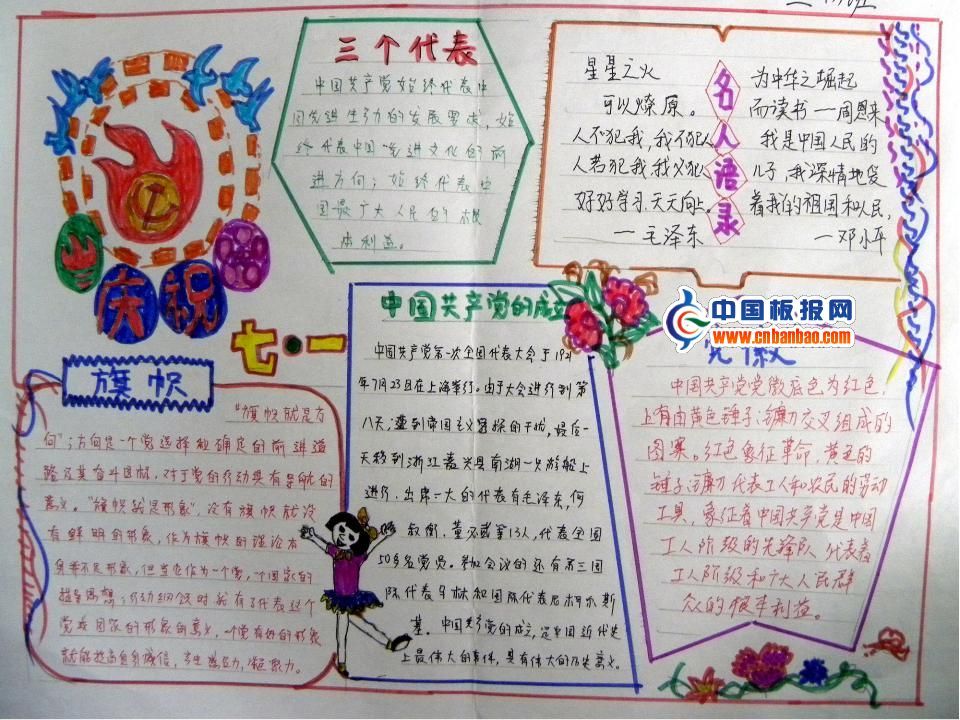 三个代表
中国共产党始终代表中
国先进生产力的发展要求,始
终代表中国先进文化的前
进方向;始终代表中
国最广大人民的根
本利益。
名人语录
星星之火
可以燎原。
人不犯我,我不犯人
人若犯我,我必犯人
好好学习,天天向上。
—毛泽东
为中华之崛起
而读书—周恩来
我是中国人民的
儿子,我深情地爱
着我的祖国和人民,
—邓小平
庆祝
七·一
旗帜
“旗帜就是方
向”;方向是一个党选择和确定的前进道
路及其奋斗目标,对于党的行动具有导航的
意义。“旗帜就是形象”,没有旗帜就没
有鲜明的形象,作为旗帜的理论本
身并不是形象,但当它作为一个党,一个国家的
指导思想,行动纲领时就有了代表这个
党或国家的形象的意义,一个党有好的形象
就能提高自身诚信,产生感召力,凝聚力。
中国共产党的成立
中国共产党第一次全国代表大会于1921
年7月23日在上海举行。由于大会进行到第
八天,遭到帝国主义密探的干扰,最后一
天移到浙江嘉兴县南湖一只游船上
进行。出席一大的代表有毛泽东,何
叔衡,董必武等13人,代表全国
50多名党员。参加会议的还有第三国
际代表马林和国际代表尼柯尔斯
基。中国共产党的成立,是中国近代史
上最伟大的事件,具有伟大的历史意义。
中国板报网
www.cnbanbao.com
党徽
中国共产党党徽底色为红色
上有由黄色锤子、镰刀交叉组成的
图案。红色象征革命,黄色的
锤子、镰刀代表工人和农民的劳动
工具,象征着中国共产党是中国
工人阶级的先锋队,代表着
工人阶级和广大人民群
众的根本利益。